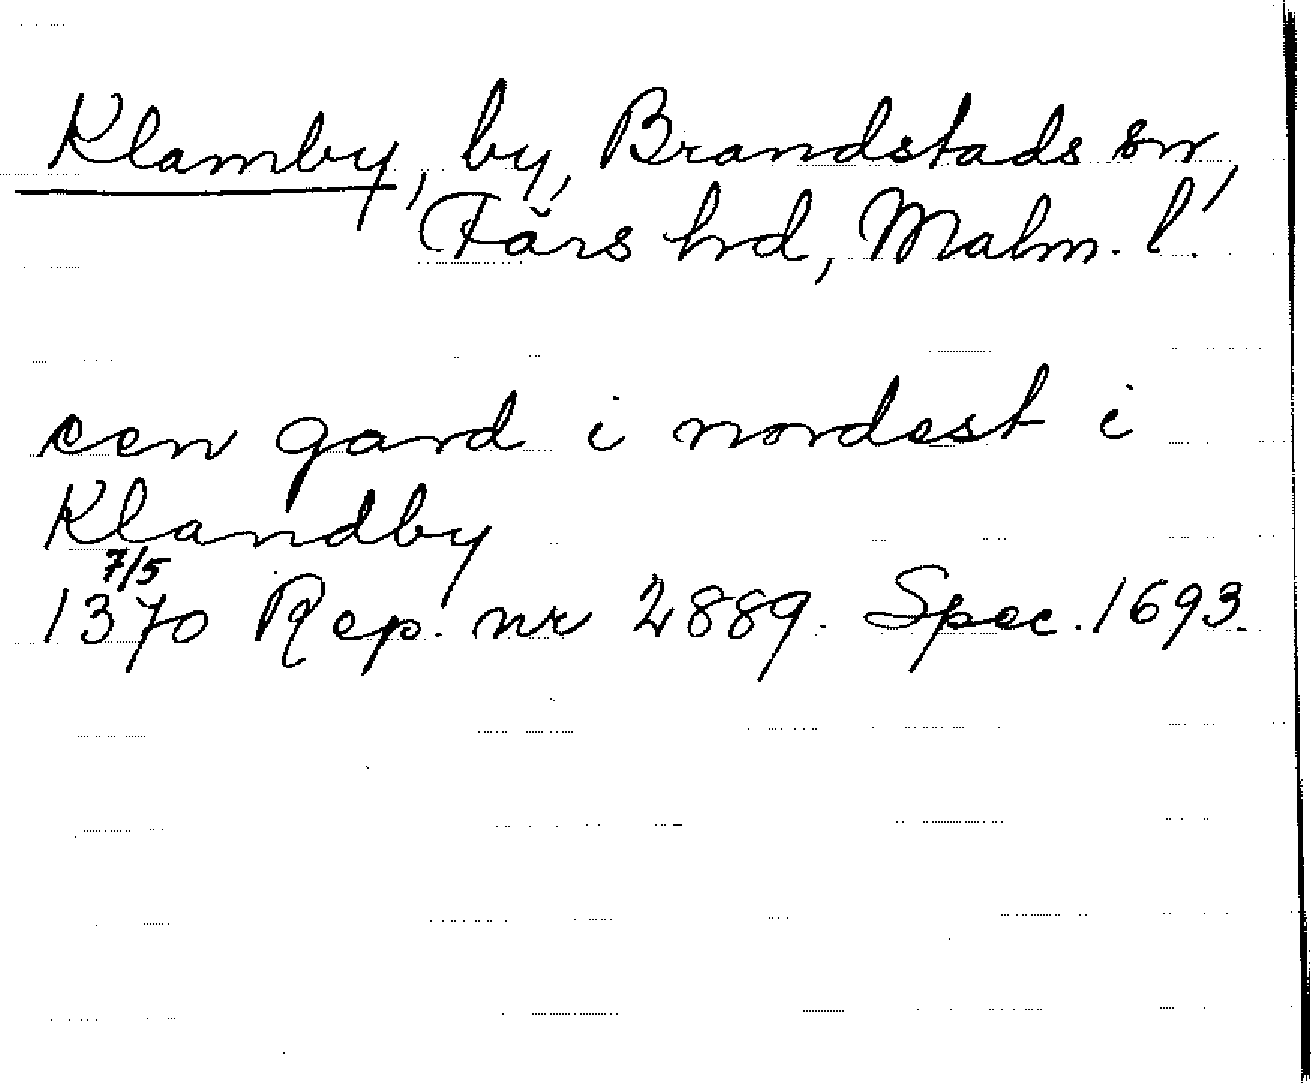 Klamby, by, Brandstads sn,
Färs hrd, Malm. l.
een gard i nordest i
Klandby
7/5
1370 Rep. nr 2889. Spec. 1693.